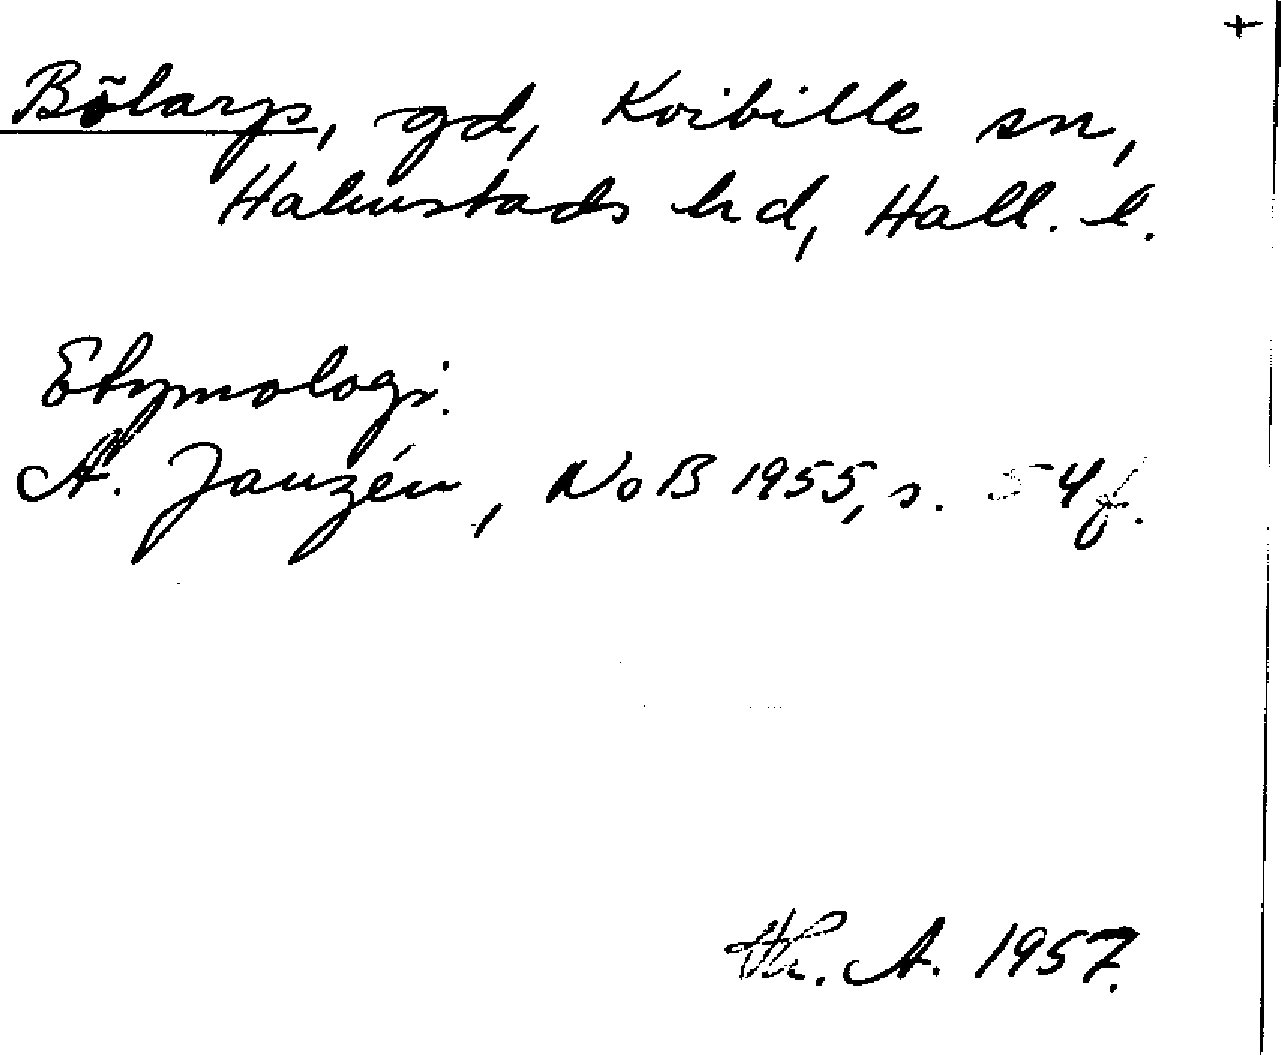 +
Bölarp, gd, Kvibille sn,
Halmstads hd, Hall. l.
Etymologi.
A. Janzén, NoB 1955, s. 54 f.
Th. A. 1957.